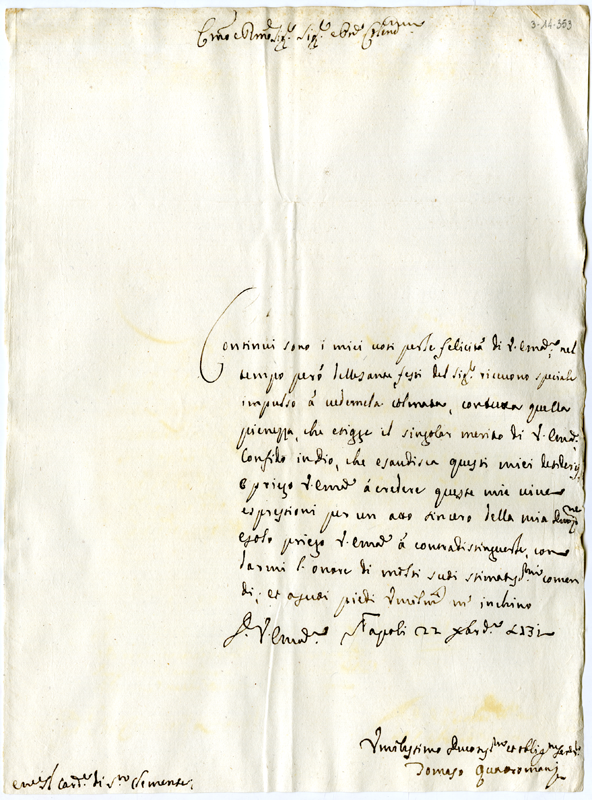 3-14-353
Em̃o e R̃mo Sig.r Sig.r e P̃ron Col.mo
Continui sono i miei voti per le felicità di V. Em.a nel
tempo però delle sante feste del Sig.re ricevono speciale
impulso à vedernela colmata, con tutta quella
pienezza, che esigge il singolar merito di V. Em.a
Confido in dio, che esaudisca questi miei desiderij,
e priego V. Em.a à credere queste mie vive
espressioni per un atto sincero della mia
e solo priego V. Em.a à contradistinguerle, con
darmi l'onore di molti suoi stimatiss.mi coman
di; et a suoi piedi umilm.te m'inchino
D. V. Em.a Napoli 22 Xbre
Umilissimo Devotiss.mo et oblig.mo
Tomaso Quattromani
Card.l di S. Clemente